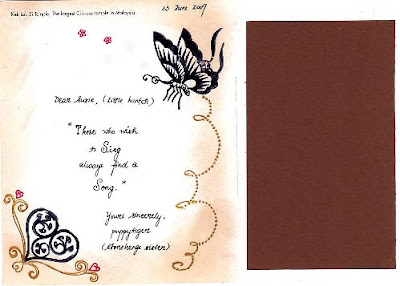 Kek Lok Si Temple, The largest Chinese temple in Malaysia
25 June 2007
Dear Suzie, (little bunfch)
"Those who wish
to Sing
always find a
Song."
Yours sincerely,
puppytiger
(stonehenge sister)